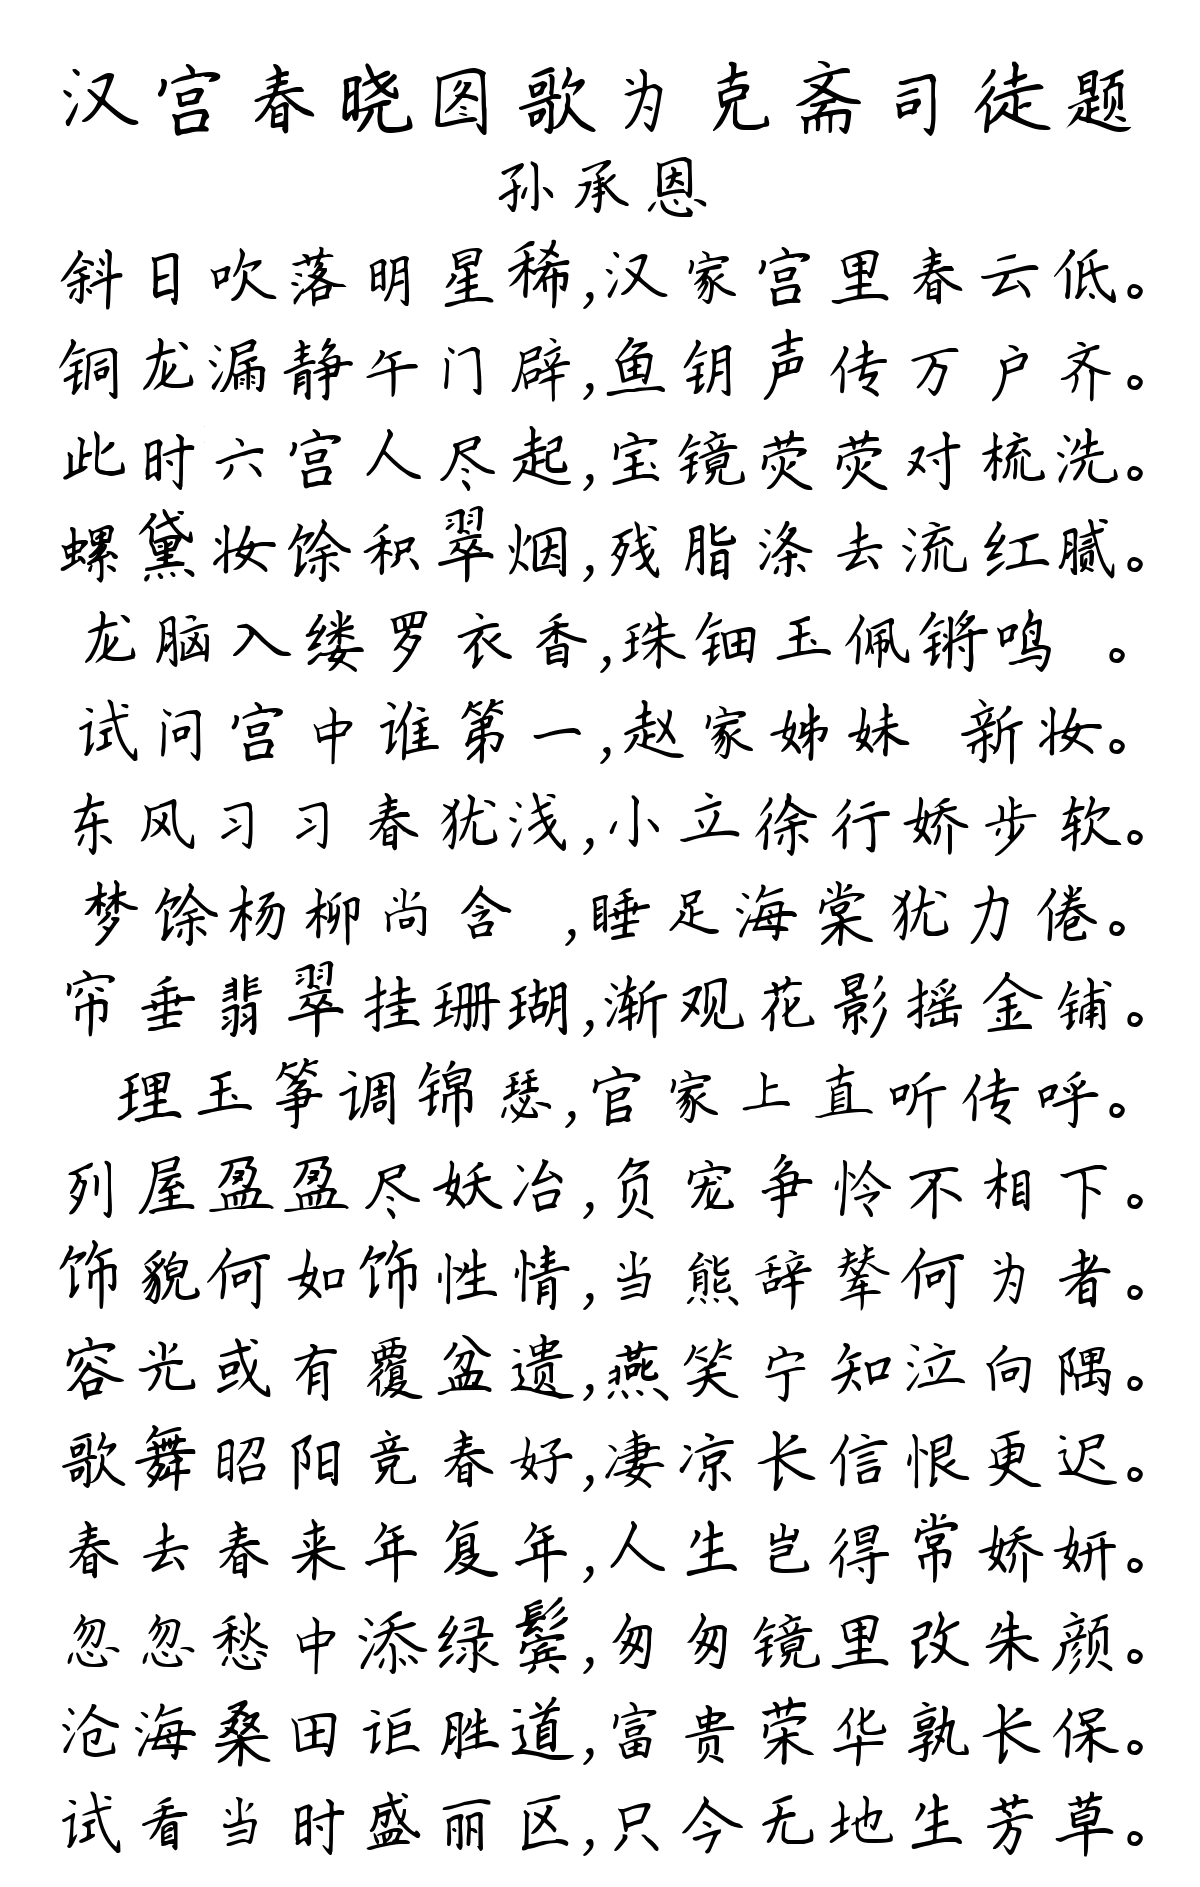 汉宫春晓图歌为克斋司徒题
孙承恩
斜日吹落明星稀,汉家宫里春云低。
铜龙漏静午门辟,鱼钥声传万户齐。
此时六宫人尽起,宝镜荧荧对梳洗。
螺黛妆馀积翠烟,残脂涤去流红腻。
龙脑入缕罗衣香,珠钿玉佩锵鸣 。
试问宫中谁第一,赵家姊妹 新妆。
东风习习春犹浅,小立徐行娇步软。
梦馀杨柳尚含 ,睡足海棠犹力倦。
帘垂翡翠挂珊瑚,渐观花影摇金铺。
理玉筝调锦瑟,官家上直听传呼。
列屋盈盈尽妖冶,负宠争怜不相下。
饰貌何如饰性情,当熊辞辇何为者。
容光或有覆盆遗,燕笑宁知泣向隅。
歌舞昭阳竞春好,凄凉长信恨更迟。
春去春来年复年,人生岂得常娇妍。
忽忽愁中添绿鬓,匆匆镜里改朱颜。
沧海桑田讵胜道,富贵荣华孰长保。
试看当时盛丽区,只今无地生芳草。